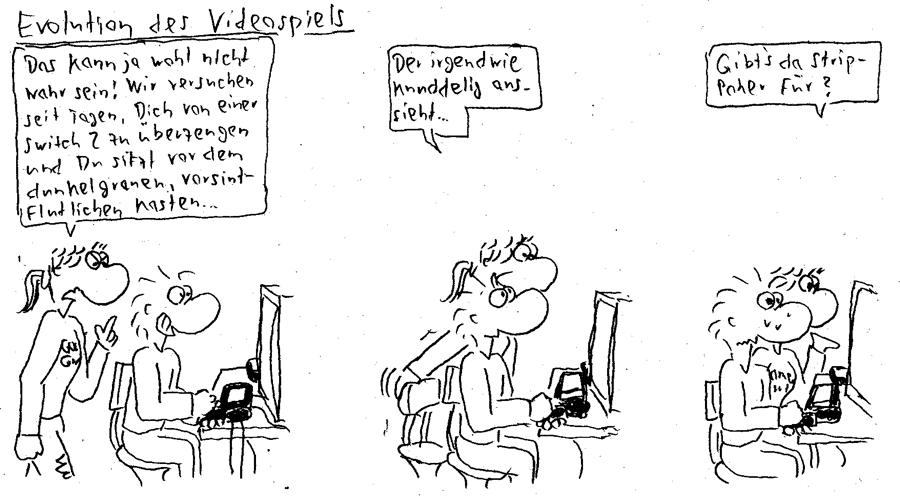 Evolution des Videospiels
Das kann ja wohl nicht
wahr sein! Wir versuchen
seit Tagen, Dich von einer
Switch 2 zu überzeugen
und Du sitzt vor dem
dunkelgrauen, vorsint-
flutlichen Kasten...
Der irgendwie
knuddelig aus-
sieht...
Gibt's da Strip-
Poker für?